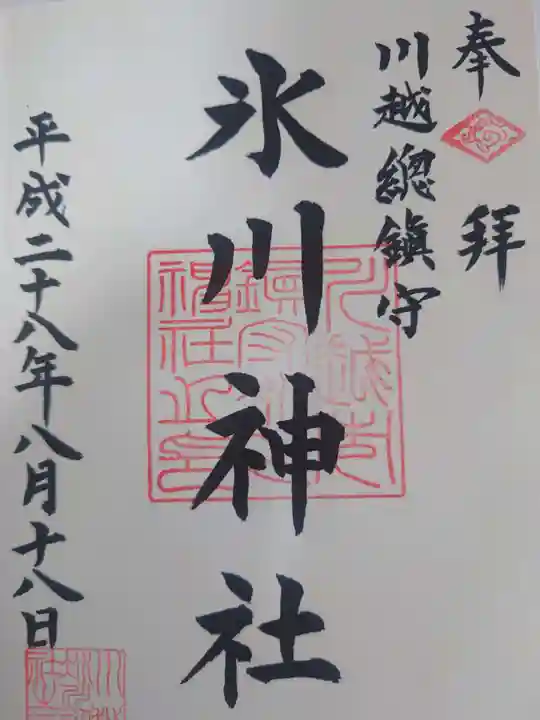 奉拝
川越總鎮守
氷川神社
平成二十八年八月十八日